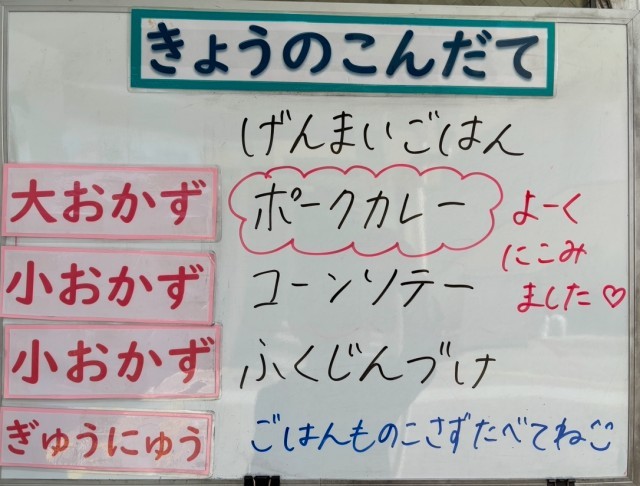 きょうのこんだて
げんまいごはん
大おかず ポークカレー
よーく
にこみ
ました♡
小おかず コーンソテー
小おかず ふくじんづけ
ぎゅうにゅう ごはんものこさずたべてね